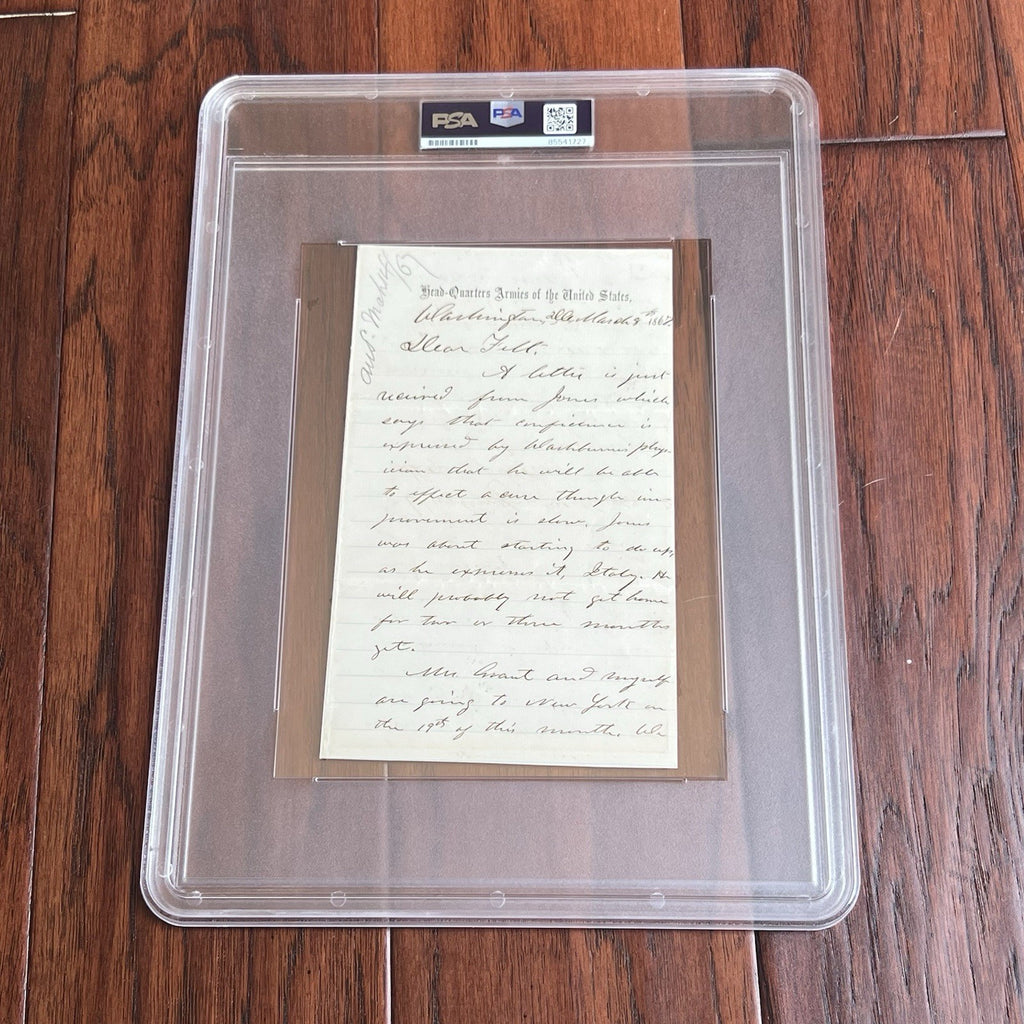 PSA PSA
85541727
Head-Quarters Armies of the United States,
Washington, D.C. March 9th 186
Dear Felt:
A letter is just
received from Jones which
says that confidence is
expressed by Washburne's phys-
ician that he will be able
to effect a cure though im-
provement is slow. Jones
was about starting to do up,
as he expresses it, Italy. He
will probably not get home
for two or three months
yet.
Mrs. Grant and myself
are going to New York on
the 19th of this month. We